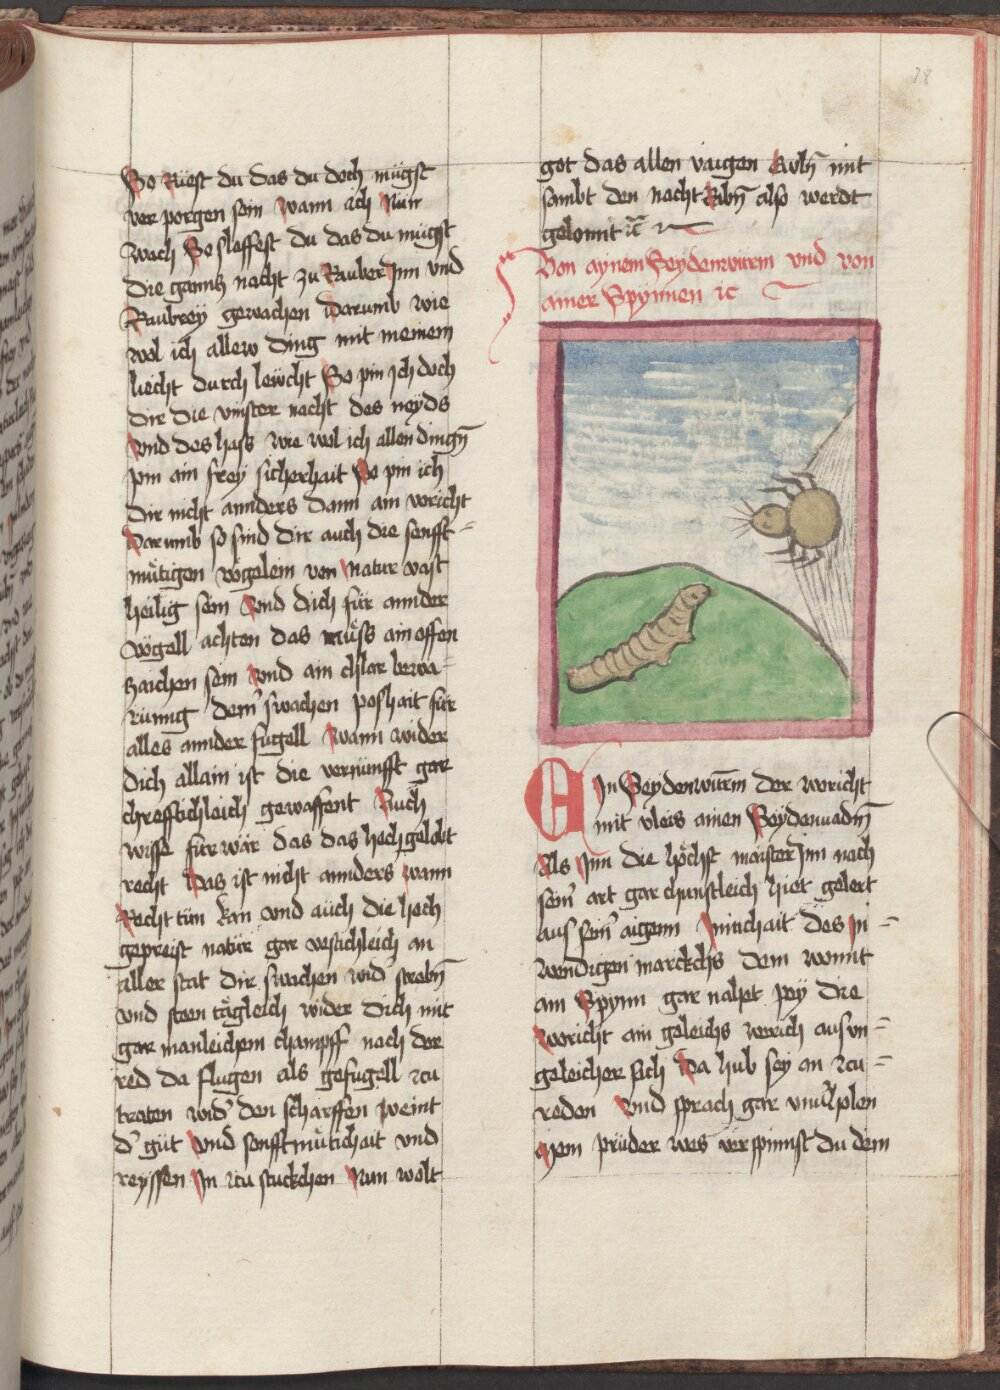 So Ruest du das du doch mügst
ver porgen sein wann ich Nun
wach So slaffest du das du mügst
die gannts nacht zu Rauber Inn vnd
Raubreÿ gewachen Warumb wie
wol ich allew ding mit meinem
liecht durch lewcht So pin Ich doch
dir die vinster nacht des neÿds
Vnd des hass wie wol ich allen dingn̄
pin ain freÿ sicherhait So pin ich
Dir nicht annders dann ain voricht
Darumb so sind dir auch die senfft=
mütigen vögelein von Natur vast
heilig sein Vnd dich für annder
vögell achten das muss ain offen
zaichen sein Vnd ain chlar bewa=
rünng dem̄ swachen poshait für
alles annder fugell Wann wider
dich allain ist die vernünfft gar
chrefftichleich gewaffent Auch
wisse für wär das das hochgelobt
recht Das ist nicht annders wann
Recht tün kan vnd auch die hoch
gepreist natür gar vestichleich an
aller stat dir swachen wid̄ strebn̄
vnd steen tägleich wider dich mit
gar manleichem champff nach der
red da flugen als gefugell zcu
traten wid̄ den scharffen peint
d̄ güt vnd senfftmütichait vnd
reÿssen In zcu stuckchen Nun wolt
got das allen vaigen Rabn̄ mit
sambt den nacht Rabn̄ also werdt
gelonnt ꝛc
Von aynem Seydenwürm vnd von
ainer Spÿnnen ꝛc
Ein Seydenwürm der woricht
mit vleis ainen Seydenuadn̄
Als Inn die höchst maisterInn nach
sein̄ art gar chunstleich hiet gelert
aus sein̄ aigenn Innichait des In=
wendigen marckchs Dem wonnt
ain Spynn gar nahet peÿ die
Woricht ain geleichs werich aus vn=
geleicher sich Da hub seÿ an zcu=
reden Vnd sprach gar
Mein prüder wes verspinnst du dein